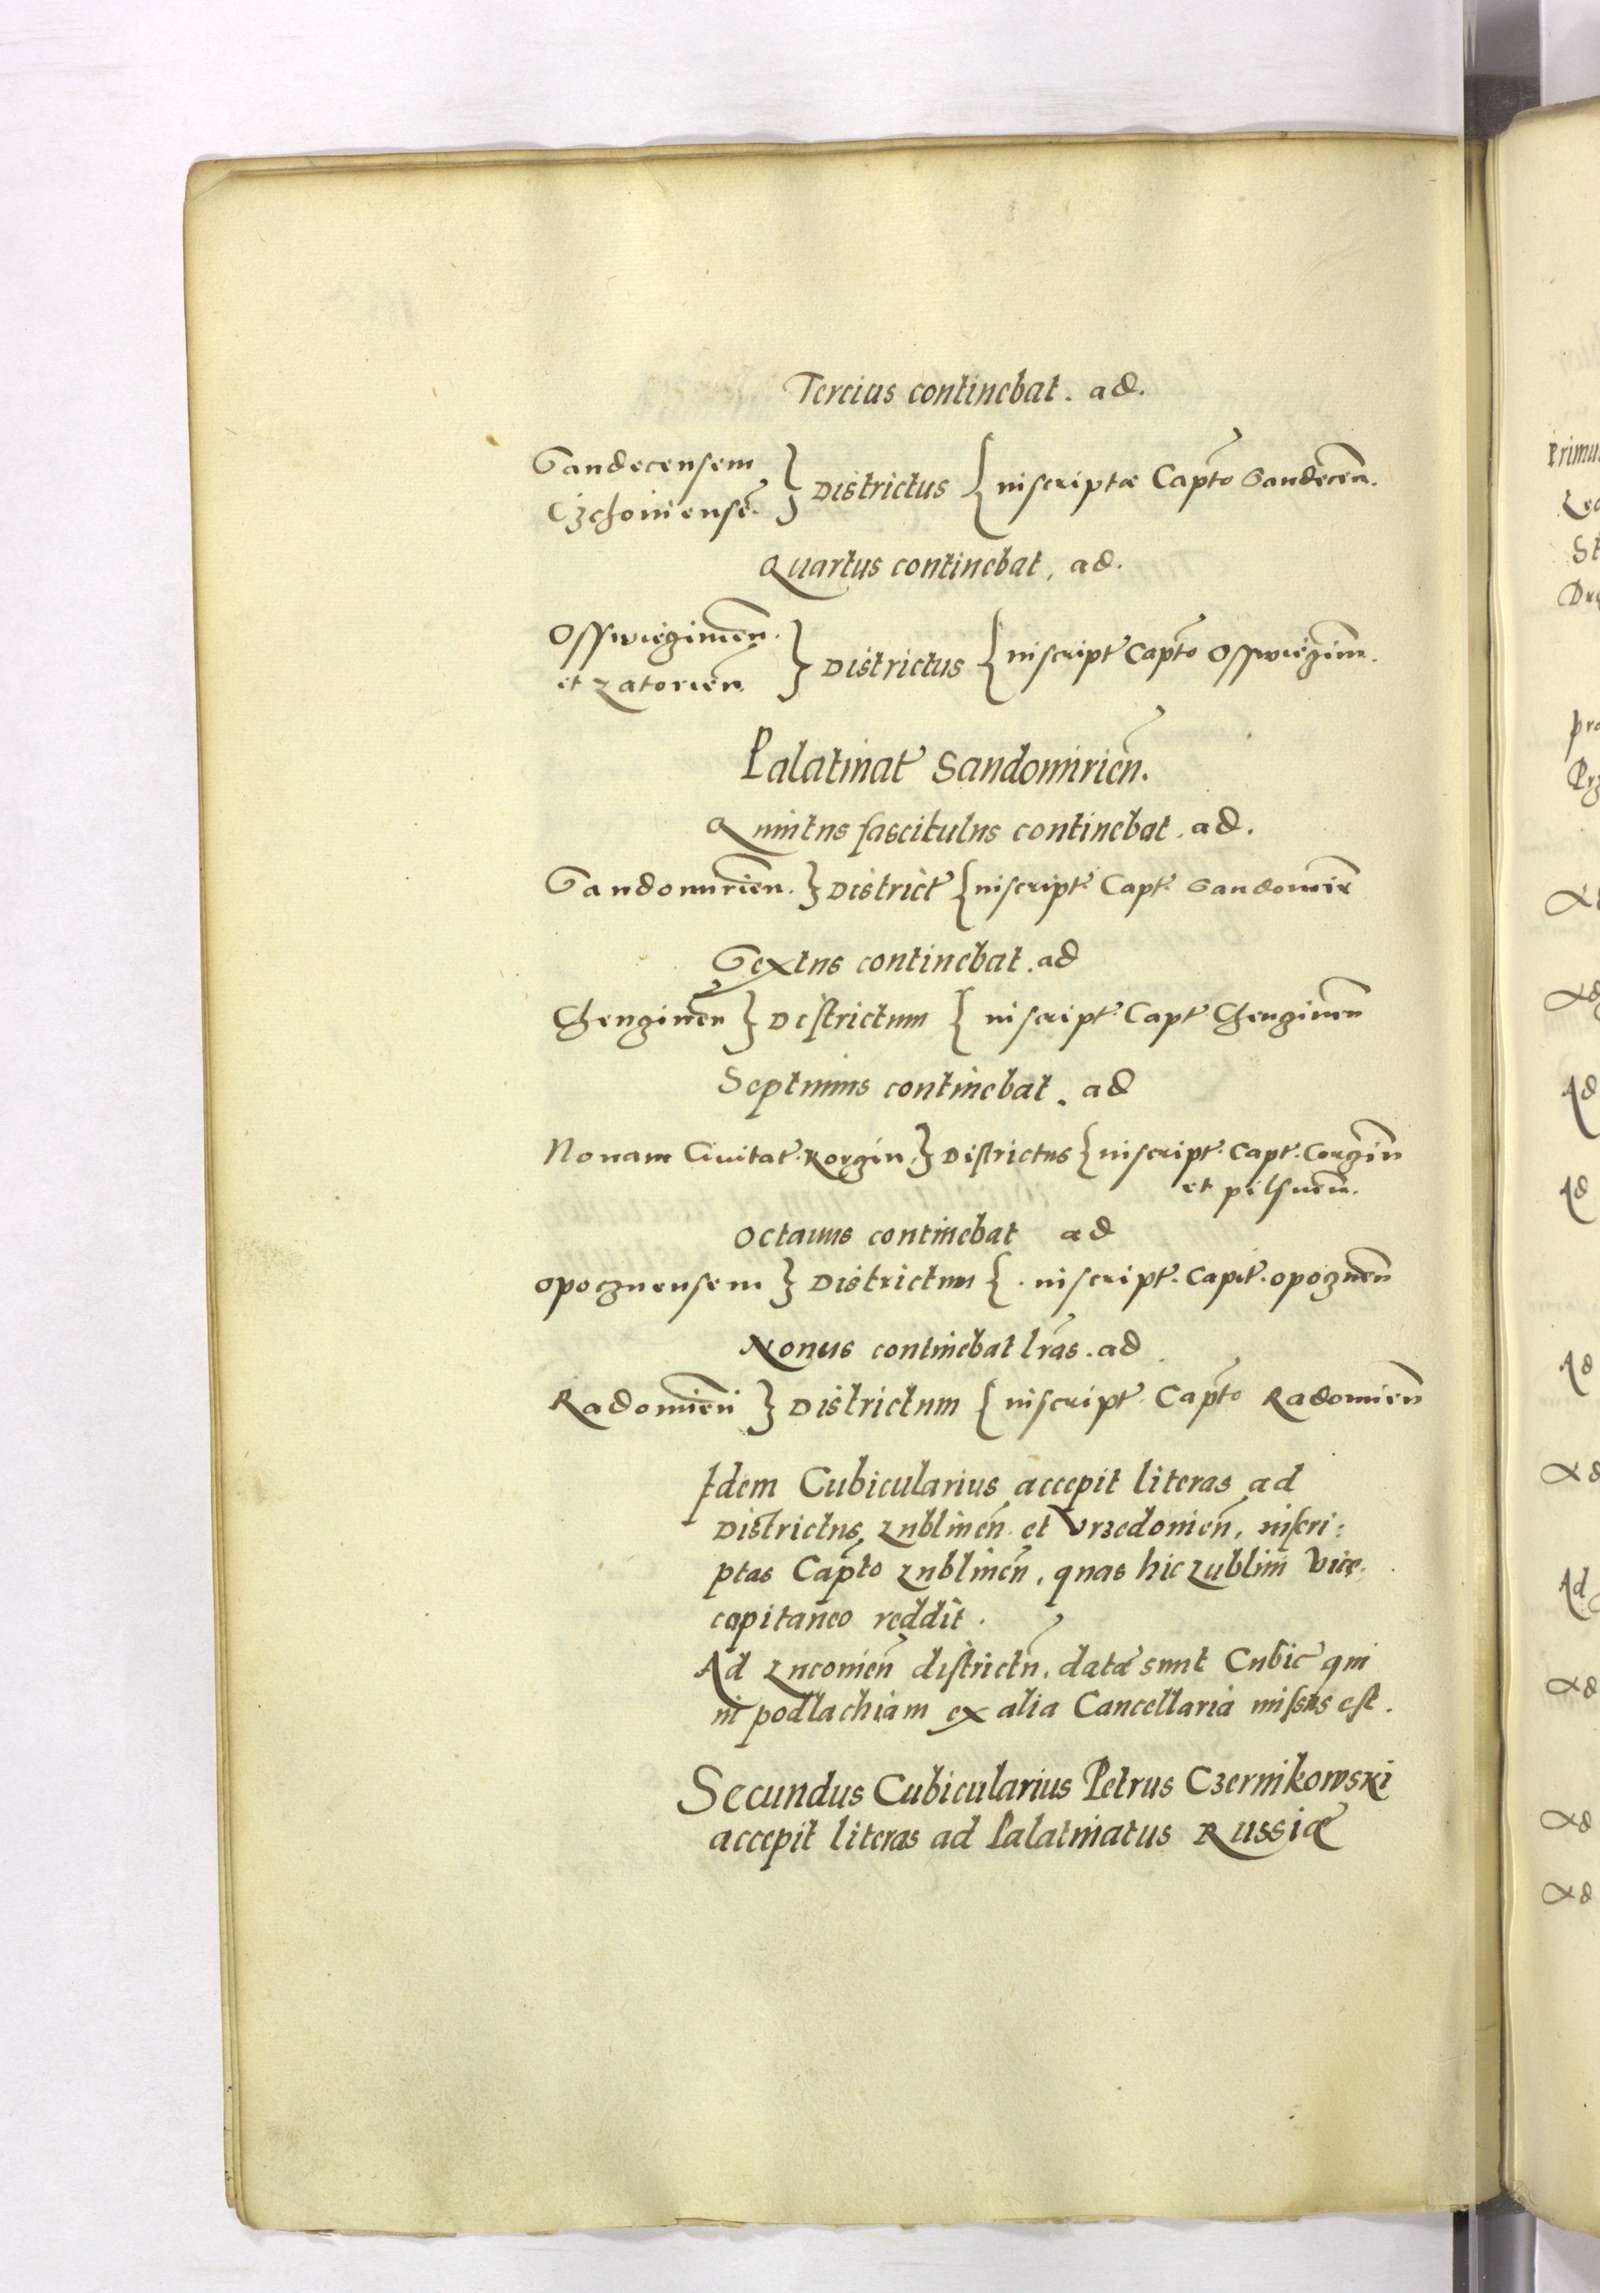 Tercius continebat. ad.
Sandecensem
Czchoviensẽ.
} Districtus { inscriptæ Capto Sandecen̄.
Quartus continebat, ad.
Osswiẽgimen̄.
et Zatorien̄
} Districtus { inscript Capto Osswiẽgim̄.
Palatinat Sandomirien̄.
Quintus fascitulus continebat. ad.
Sandomirien̄. } District { inscript. Capt. Sandomir̄
Sextus continebat. ad
Chenginen̄ } Districtum { inscript. Capt Chenginen̄
Septimus continebat. ad
Nouam Ciuitat. Korgin, } Districtus { inscript. Capt. Corgin̄
et pilsnen̄.
Octauus continebat ad
Opocznensem } Districtum { . inscript. Capit. opocznen̄
Nonus continebat lr̃as. ad
Radomien̄ } Districtum { inscript. Capto Radomien̄
Idem Cubicularius accepit literas ad
Districtus Lublinen̄. et Vrzedouien̄, inscri:
ptas Capto Lublinen̄, quas hic Lublin̄ Vice
capitaneo reddit.
Ad Lucouien̄ districtũ, datæ sunt Cubic qui
in podlachiam ex alia Cancellaria missus est.
Secundus Cubicularius Petrus Czernikowski
accepit literas ad Palatinatus Russiæ
Primu
Ad
Ad
Ad
Ad
Ad
Ad
Ad
Ad
Ad
Ad